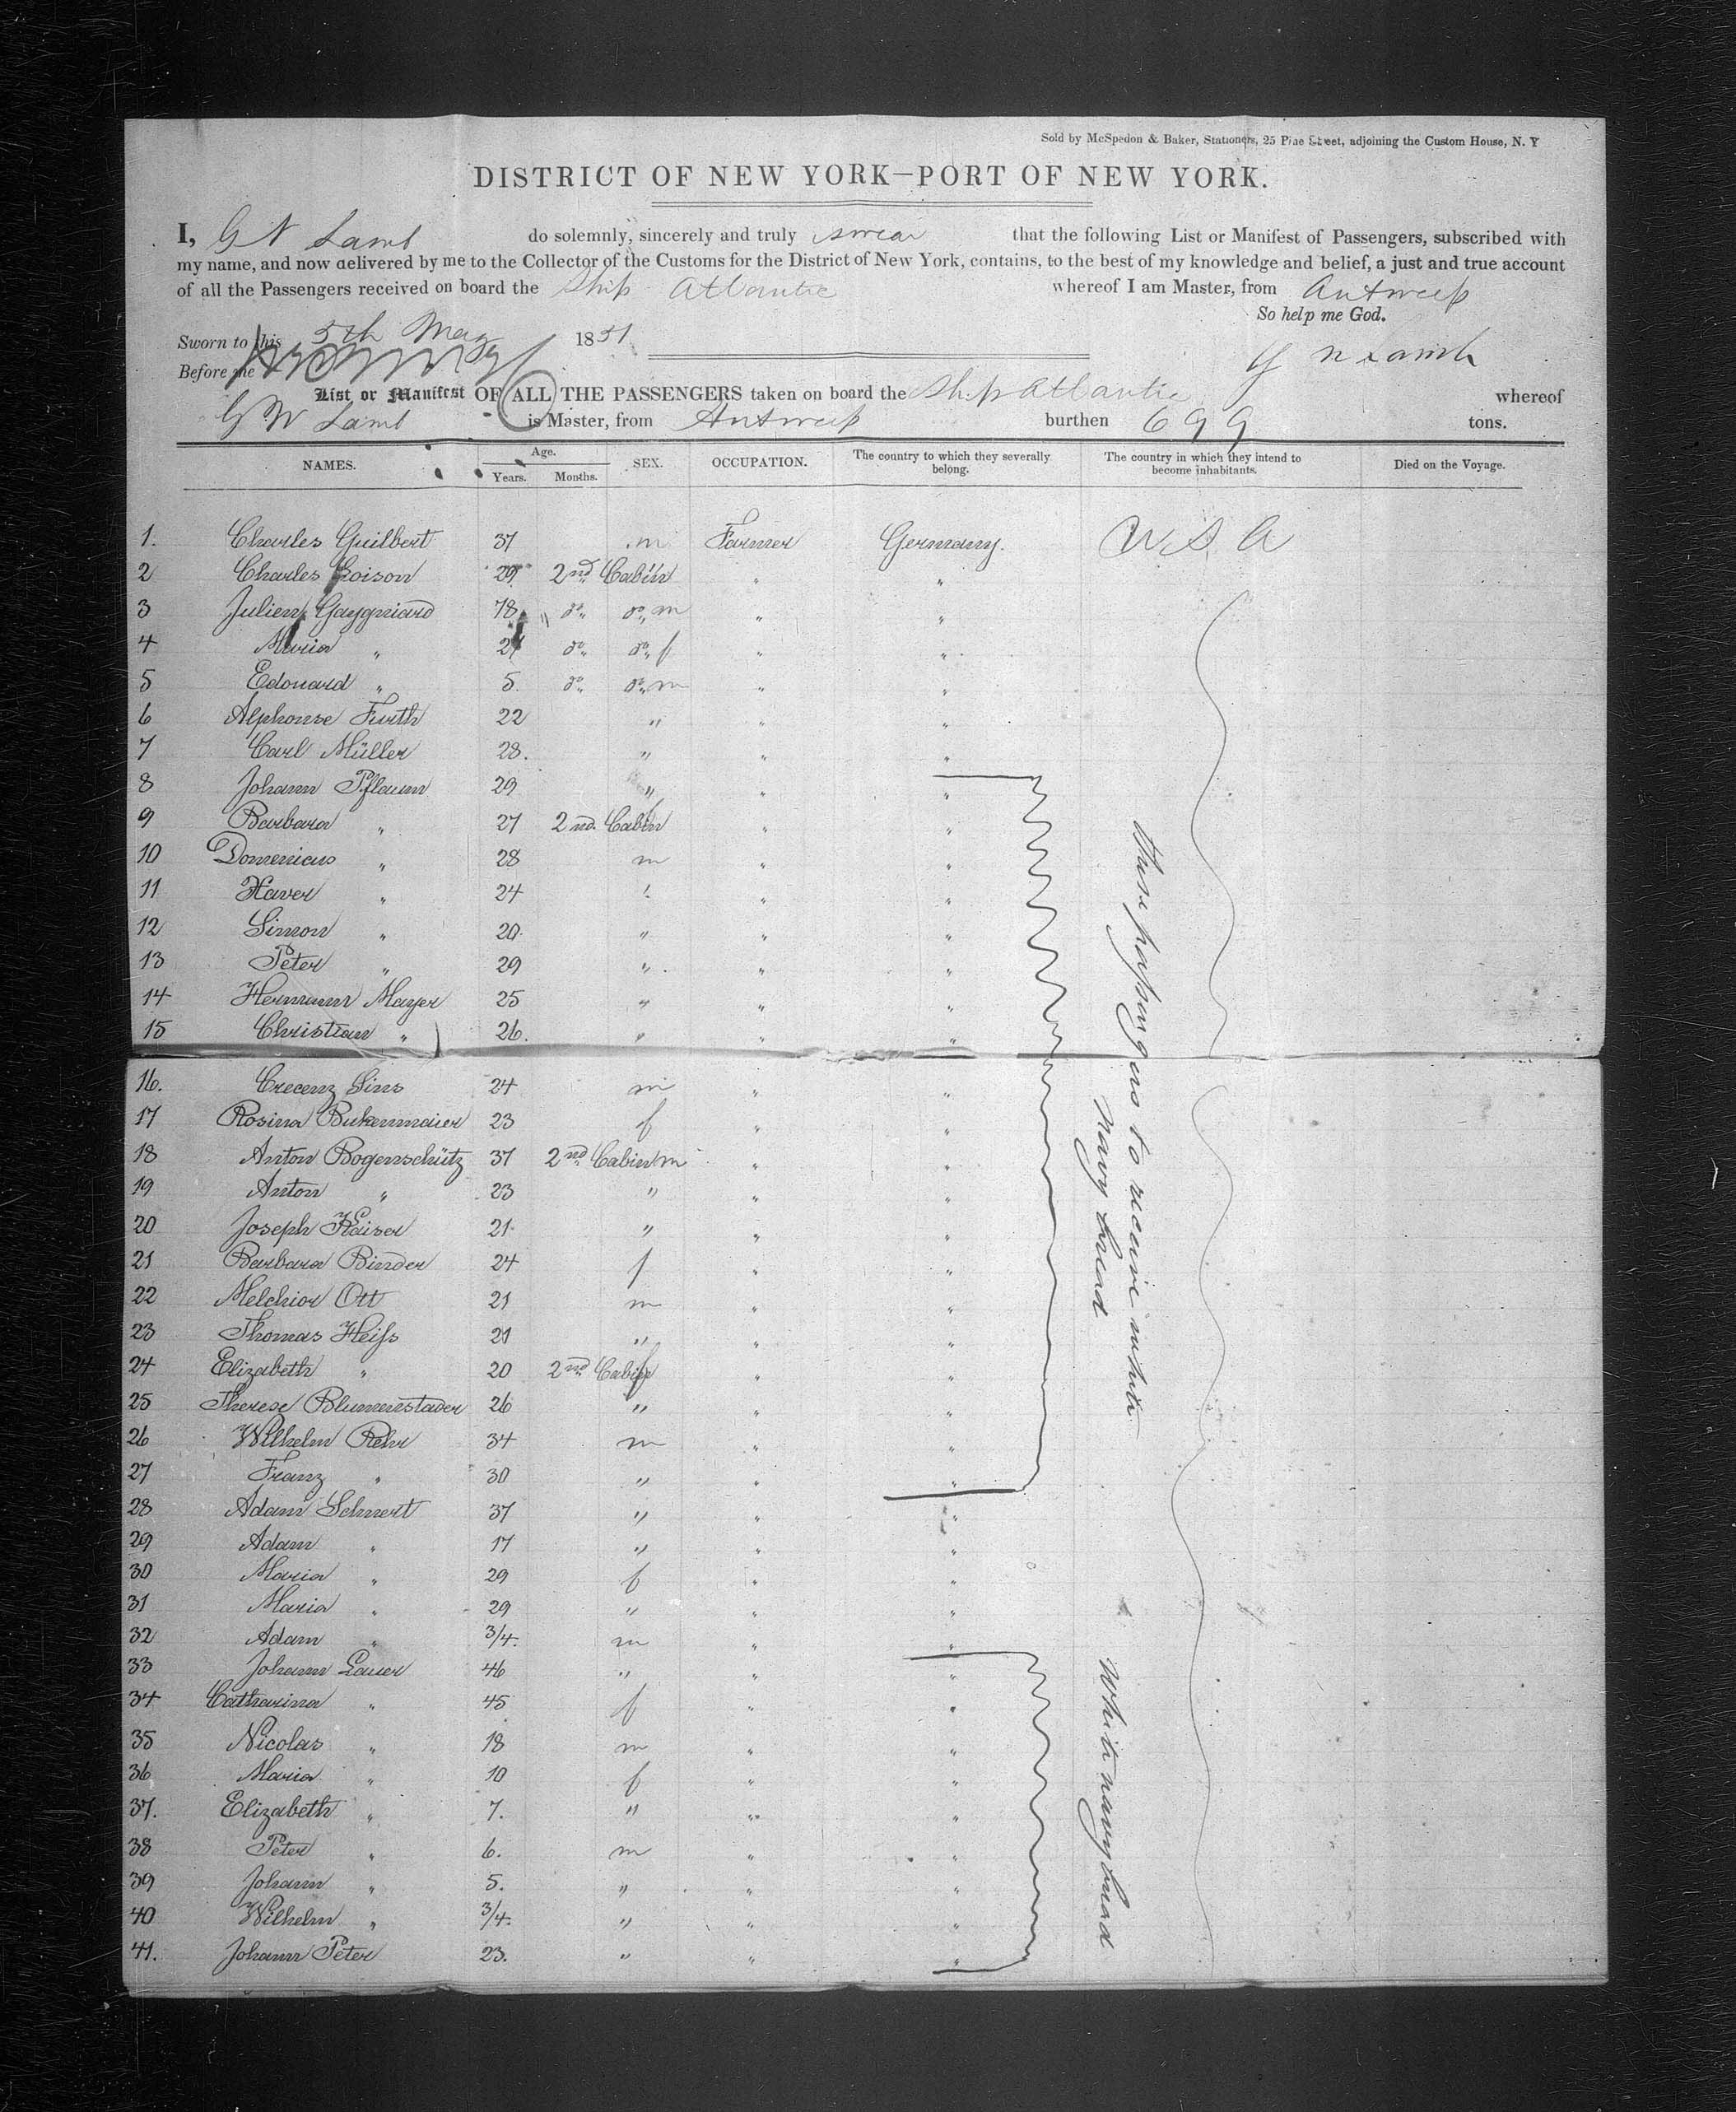 Sold by McSpedon & Baker, Stationers, 25 Pine Street, adjoining the Custom House, N. Y
DISTRICT OF NEW YORK—PORT OF NEW YORK.
I, G N Lamb do solemnly, sincerely and truly swear that the following List or Manifest of Passengers, subscribed with
my name, and now delivered by me to the Collector of the Customs for the District of New York, contains, to the best of my knowledge and belief, a just and true account
of all the Passengers received on board the Ship Atlantic whereof I am Master, from Antwerp
So help me God.
Sworn to this 5th May 1851
G N Lamb
Before me
List or Manifest OF ALL THE PASSENGERS taken on board the Ship Atlantic whereof
G W Lamb is Master, from Antwerp burthen 699 tons.
NAMES. Age. Years. Months. SEX. OCCUPATION. The country to which they severally belong. The country in which they intend to become inhabitants. Died on the Voyage.
1. Charles Guilbert 37 m Farmer Germany. U S A
2 Charles Loison 29 2nd Cabin " "
3 Julien Gaygniard 78 " do " do " m " "
4 Maria " do " do " f " "
5 Edouard " 5. do " do " m " "
6 Alphonse Furth 22 " " "
7 Carl Müller 28. " " "
8 Johann Pflaum 29 " " "
9 Barbara " 27 2nd. Cabin " "
10 Domenicus " 28 m " "
11 Xaver " 24 " " "
12 Simon " 20. " " "
13 Peter " 29 " " "
14 Hermann Mayer 25 " " "
15 Christian " 26. " " "
16. Crecenz Sins 24 m " "
17 Rosina Bukenmaier 23 f " "
18 Anton Bogenschütz 37 2nd Cabin m " "
19 Anton " 23 " " "
20 Joseph Kaiser 21. " " "
21 Barbara Binder 24 f " "
22 Melchior Ott 21 m " "
23 Thomas Heiss 21 " " "
24 Elizabeth " 20 2nd Cabin f " "
25 Therese Blumenstader 26 " " "
26 Wilhelm Rehr 34 m " "
27 Franz " 30 " " "
these passengers to receive white
navy bread
28 Adam Schnert 37 " " "
29 Adam " 17 " " "
30 Maria " 29 f " "
31 Maria " 29 " " "
32 Adam " 3/4. m " "
33 Johann Lauer 46 " " "
34 Catharina " 45 f " "
35 Nicolas " 18 m " "
36 Maria " 10 f " "
37. Elizabeth " 7. " " "
38 Peter " 6. m " "
39 Johann " 5. " " "
40 Wilhelm " 3/4. " " "
41. Johann Peter 23. " " "
White navy bread